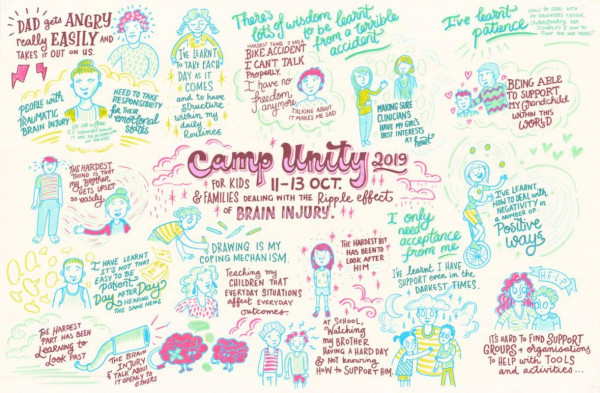 DAD gets ANGRY
really EASILY AND
TAKES IT OUT ON US.
I'VE LEARNT
TO TAKE EACH
DAY AS IT
COMES
and to have
structure
within my
daily
Routines
There's
lots of wisdom to be learnt
from a terrible
accident
HARDEST THING I HAD A
BIKE ACCIDENT
I CAN'T TALK
PROPERLY.
I have no
freedom
anymore
TALKING ABOUT
IT MAKES ME SAD
MAKING SURE
CLINICIANS
HAVE MY GIRL'S
BEST INTERESTS
AT heart
I've learnt
patience
BEING ABLE
TO SUPPORT
MY GRANDCHILD
WITHIN THIS
WORLD
PEOPLE WITH
TRAUMATIC
BRAIN INJURY
NEED TO TAKE
RESPONSIBILITY
for their
emotional
states
THE HARDEST
THING IS THAT
MY BROTHER
GETS UPSET
so easily.
Camp Unity 2019
FOR KIDS 11-13 OCT.
& FAMILIES DEALING WITH THE Ripple effect
OF BRAIN INJURY.
I'VE LEARNT
HOW TO DEAL WITH
NEGATIVITY IN
A NUMBER OF
Positive
ways
DRAWING IS MY
COPING MECHANISM.
I only
need
acceptance
from me
I HAVE LEARNT
IT'S NOT THAT
EASY TO BE
Patient
Day AFTER
Day
HEARING
THE SAME
Teaching my
CHILDREN THAT
EVERYDAY SITUATIONS
affect EVERYDAY
outcomes.
THE HARDEST BIT
HAS BEEN TO
LOOK AFTER
HIM
I'VE LEARNT I HAVE
SUPPORT even in the
DARKEST TIMES.
HELP
THE HARDEST
PART HAS BEEN
Learning to
Look PAST
THE BRAIN
INJURY
& TALK ABOUT
IT OPENLY TO
OTHERS
AT SCHOOL,
Watching
my BROTHER
HAVING A HARD DAY
& NOT knowing
HOW TO SUPPORT HIM.
IT'S HARD TO FIND SUPPORT
GROUPS + organisations
TO HELP with TOOLS
and activities...